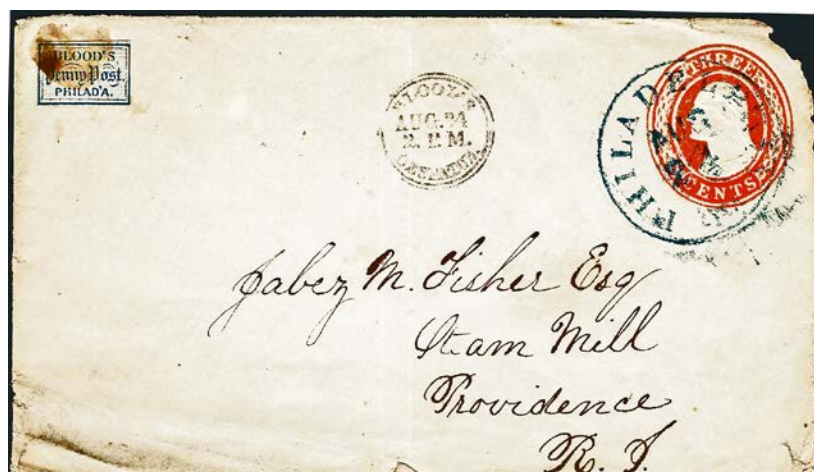 BLOOD'S
Penny Post.
PHILAD'A.
BLOOD'S
AUG. 24
2. P.M.
DESPATCH.
THREE
CENTS
PHILADE
Jabez M. Fisher Esq
Steam Mill
Providence
R. I